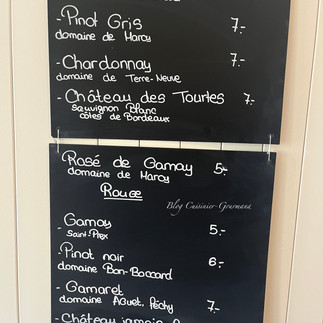 - Pinot Gris 7.-
domaine de Marcy
- Chardonnay 7.-
domaine de Terre-Neuve
- Château des Tourtes 7.-
sauvignon Blanc
côtes de Bordeaux
- Rosé de Gamay 5.-
domaine de Marcy
Rouge
Blog Cuisinier-Gourmand
- Gamay 5.-
Saint-Prex
- Pinot noir 6.-
domaine Bon-Boccard
- Gamaret
domaine Aguet, Péchy 7.-
- Château jamais